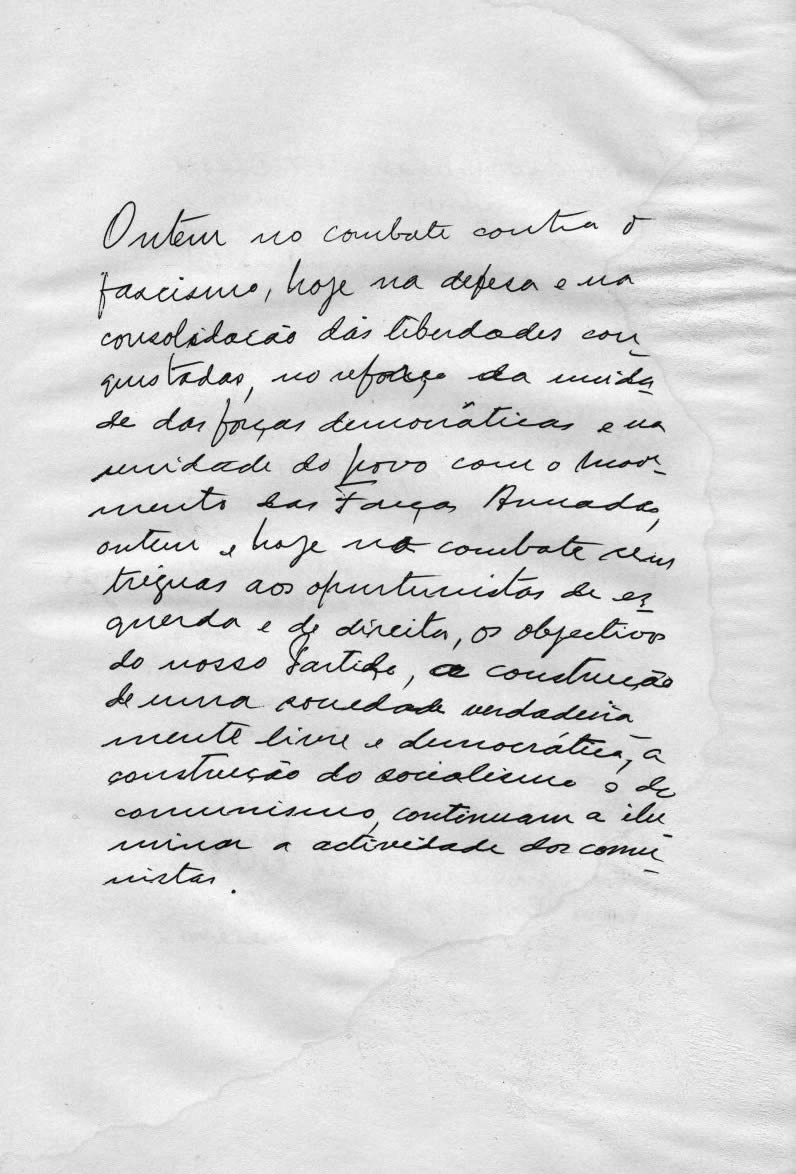 Ontem no combate contra o
fascismo, hoje na defesa e na
consolidação das liberdades con-
quistadas, no reforço da unida-
de das forças democráticas e na
unidade do povo com o Movi-
mento das Forças Armadas,
ontem e hoje no combate sem
tréguas aos oportunistas de es-
querda e de direita, os objectivos
do nosso Partido, a construção
de uma sociedade verdadeira-
mente livre e democrática, a
construção do socialismo e do
comunismo, continuam a ilu-
minar a actividade dos comu-
nistas.